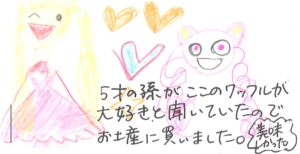 5才の孫がここのワッフルが
大好きと聞いていたので
お土産に買いました。
美味
かった